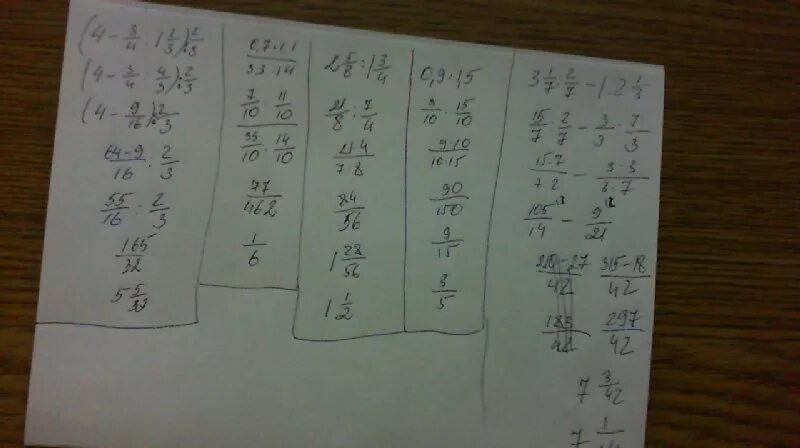 (4 - 3/4 : 1 1/3) : 2/3
(4 - 3/4 : 4/3) : 2/3
(4 - 9/16) : 2/3
64-9/16 : 2/3
55/16 : 2/3
165/32
5 5/32
0,7 · 1,1 / 3,3 · 1,4
7/10 · 11/10
33/10 · 14/10
77/462
1/6
2 5/8 : 1 3/4
21/8 : 7/4
21 4/7 8
84/56
1 28/56
1 1/2
0,9 : 1,5
9/10 : 15/10
9·10/10·15
90/150
9/15
3/5
3 1/7 : 2/7 - 1 : 2 1/3
15/7 : 2/7 - 3/3 : 7/3
15·7/7 2 - 3·3/3·7
105/14 - 9/21
210-27/42 315-18/42
183/42 297/42
7 3/42
7 1/